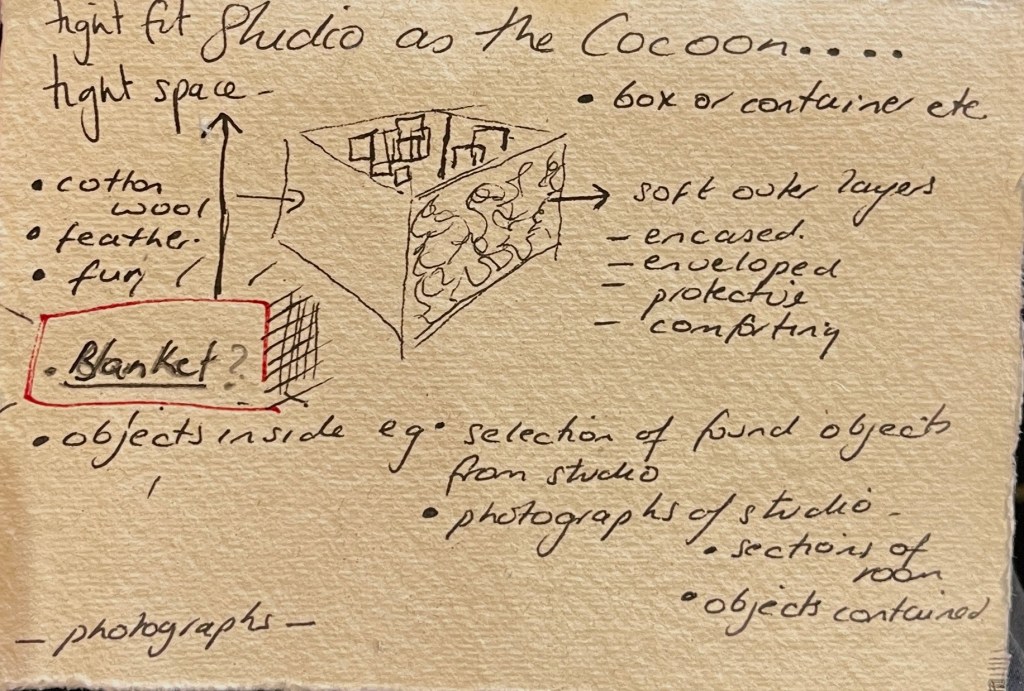 tight fit
Studio as the Cocoon....
tight space -
• box or container etc
• cotton
wool
• feather.
• fur
soft outer layers
- encased.
- enveloped
- protective
- comforting
• Blanket?
• objects inside eg • selection of found objects
from studio
• photographs of studio -
• sections of
room
• objects contained
- photographs -